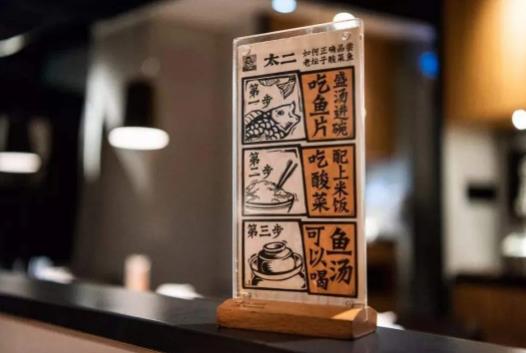 太二
如何正确品尝
老坛子酸菜鱼
第一步
盛汤进碗
吃鱼片
第二步
配上米饭
吃酸菜
第三步
鱼汤
可以喝